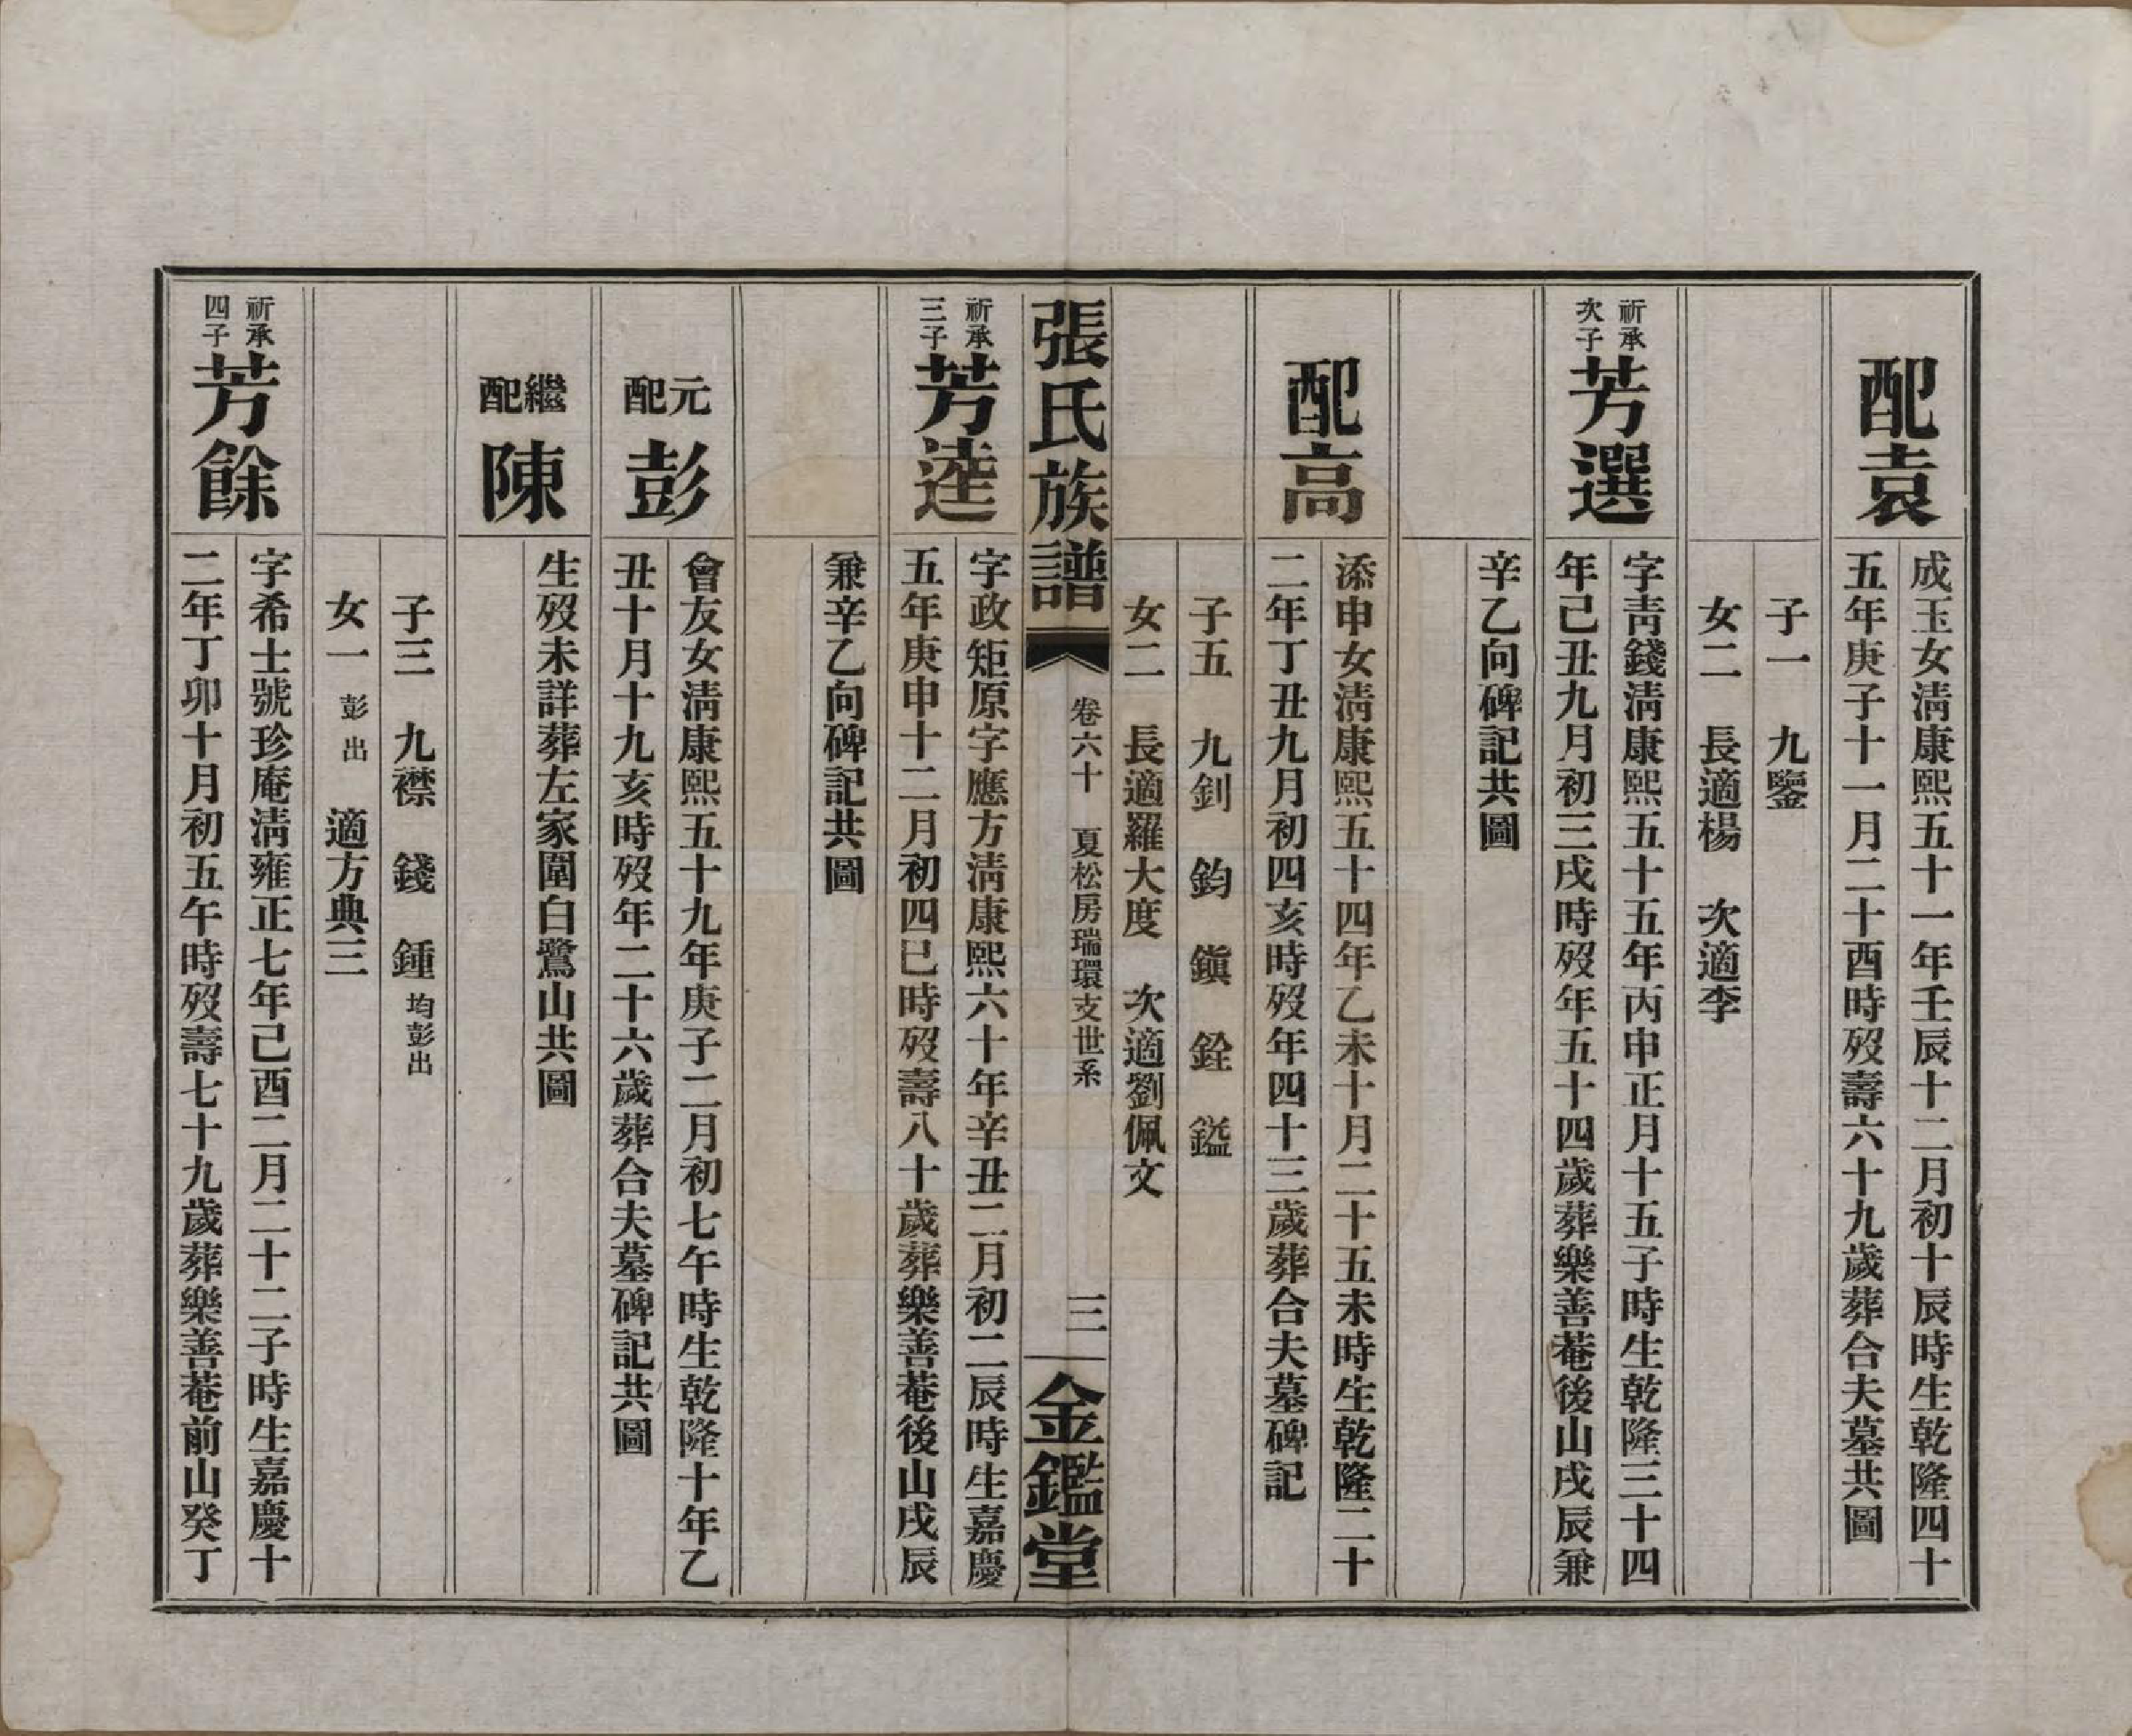 配袁
成玉女淸康熙五十一年壬辰十二月初十辰時生乾隆四十
五年庚子十一月二十酉時歿壽六十九歲葬合夫墓共圖
子一　九鑒
女二　長適楊　次適李
祈承
次子
芳選
字靑錢淸康熙五十五年丙申正月十五子時生乾隆三十四
年己丑九月初三戌時歿年五十四歲葬樂善菴後山戌辰兼
辛乙向碑記共圖
配高
添申女淸康熙五十四年乙未十月二十五未時生乾隆二十
二年丁丑九月初四亥時歿年四十三歲葬合夫墓碑記
子五　九釗　鈞　鎭　銓　鎰
女二　長適羅大度　次適劉佩文
張氏族譜
卷六十　夏松房瑞環支世系
三
金鑑堂
祈承
三子
芳逵
字政矩原字應方淸康熙六十年辛丑二月初二辰時生嘉慶
五年庚申十二月初四巳時歿壽八十歲葬樂善菴後山戌辰
兼辛乙向碑記共圖
元配
彭
會友女淸康熙五十九年庚子二月初七午時生乾隆十年乙
丑十月十九亥時歿年二十六歲葬合夫墓碑記共圖
繼配
陳
生歿未詳葬左家圍白鷺山共圖
子三　九襟　錢　鍾均彭出
女一彭出　適方典三
祈承
四子
芳餘
字希士號珍庵淸雍正七年己酉二月二十二子時生嘉慶十
二年丁卯十月初五午時歿壽七十九歲葬樂善菴前山癸丁